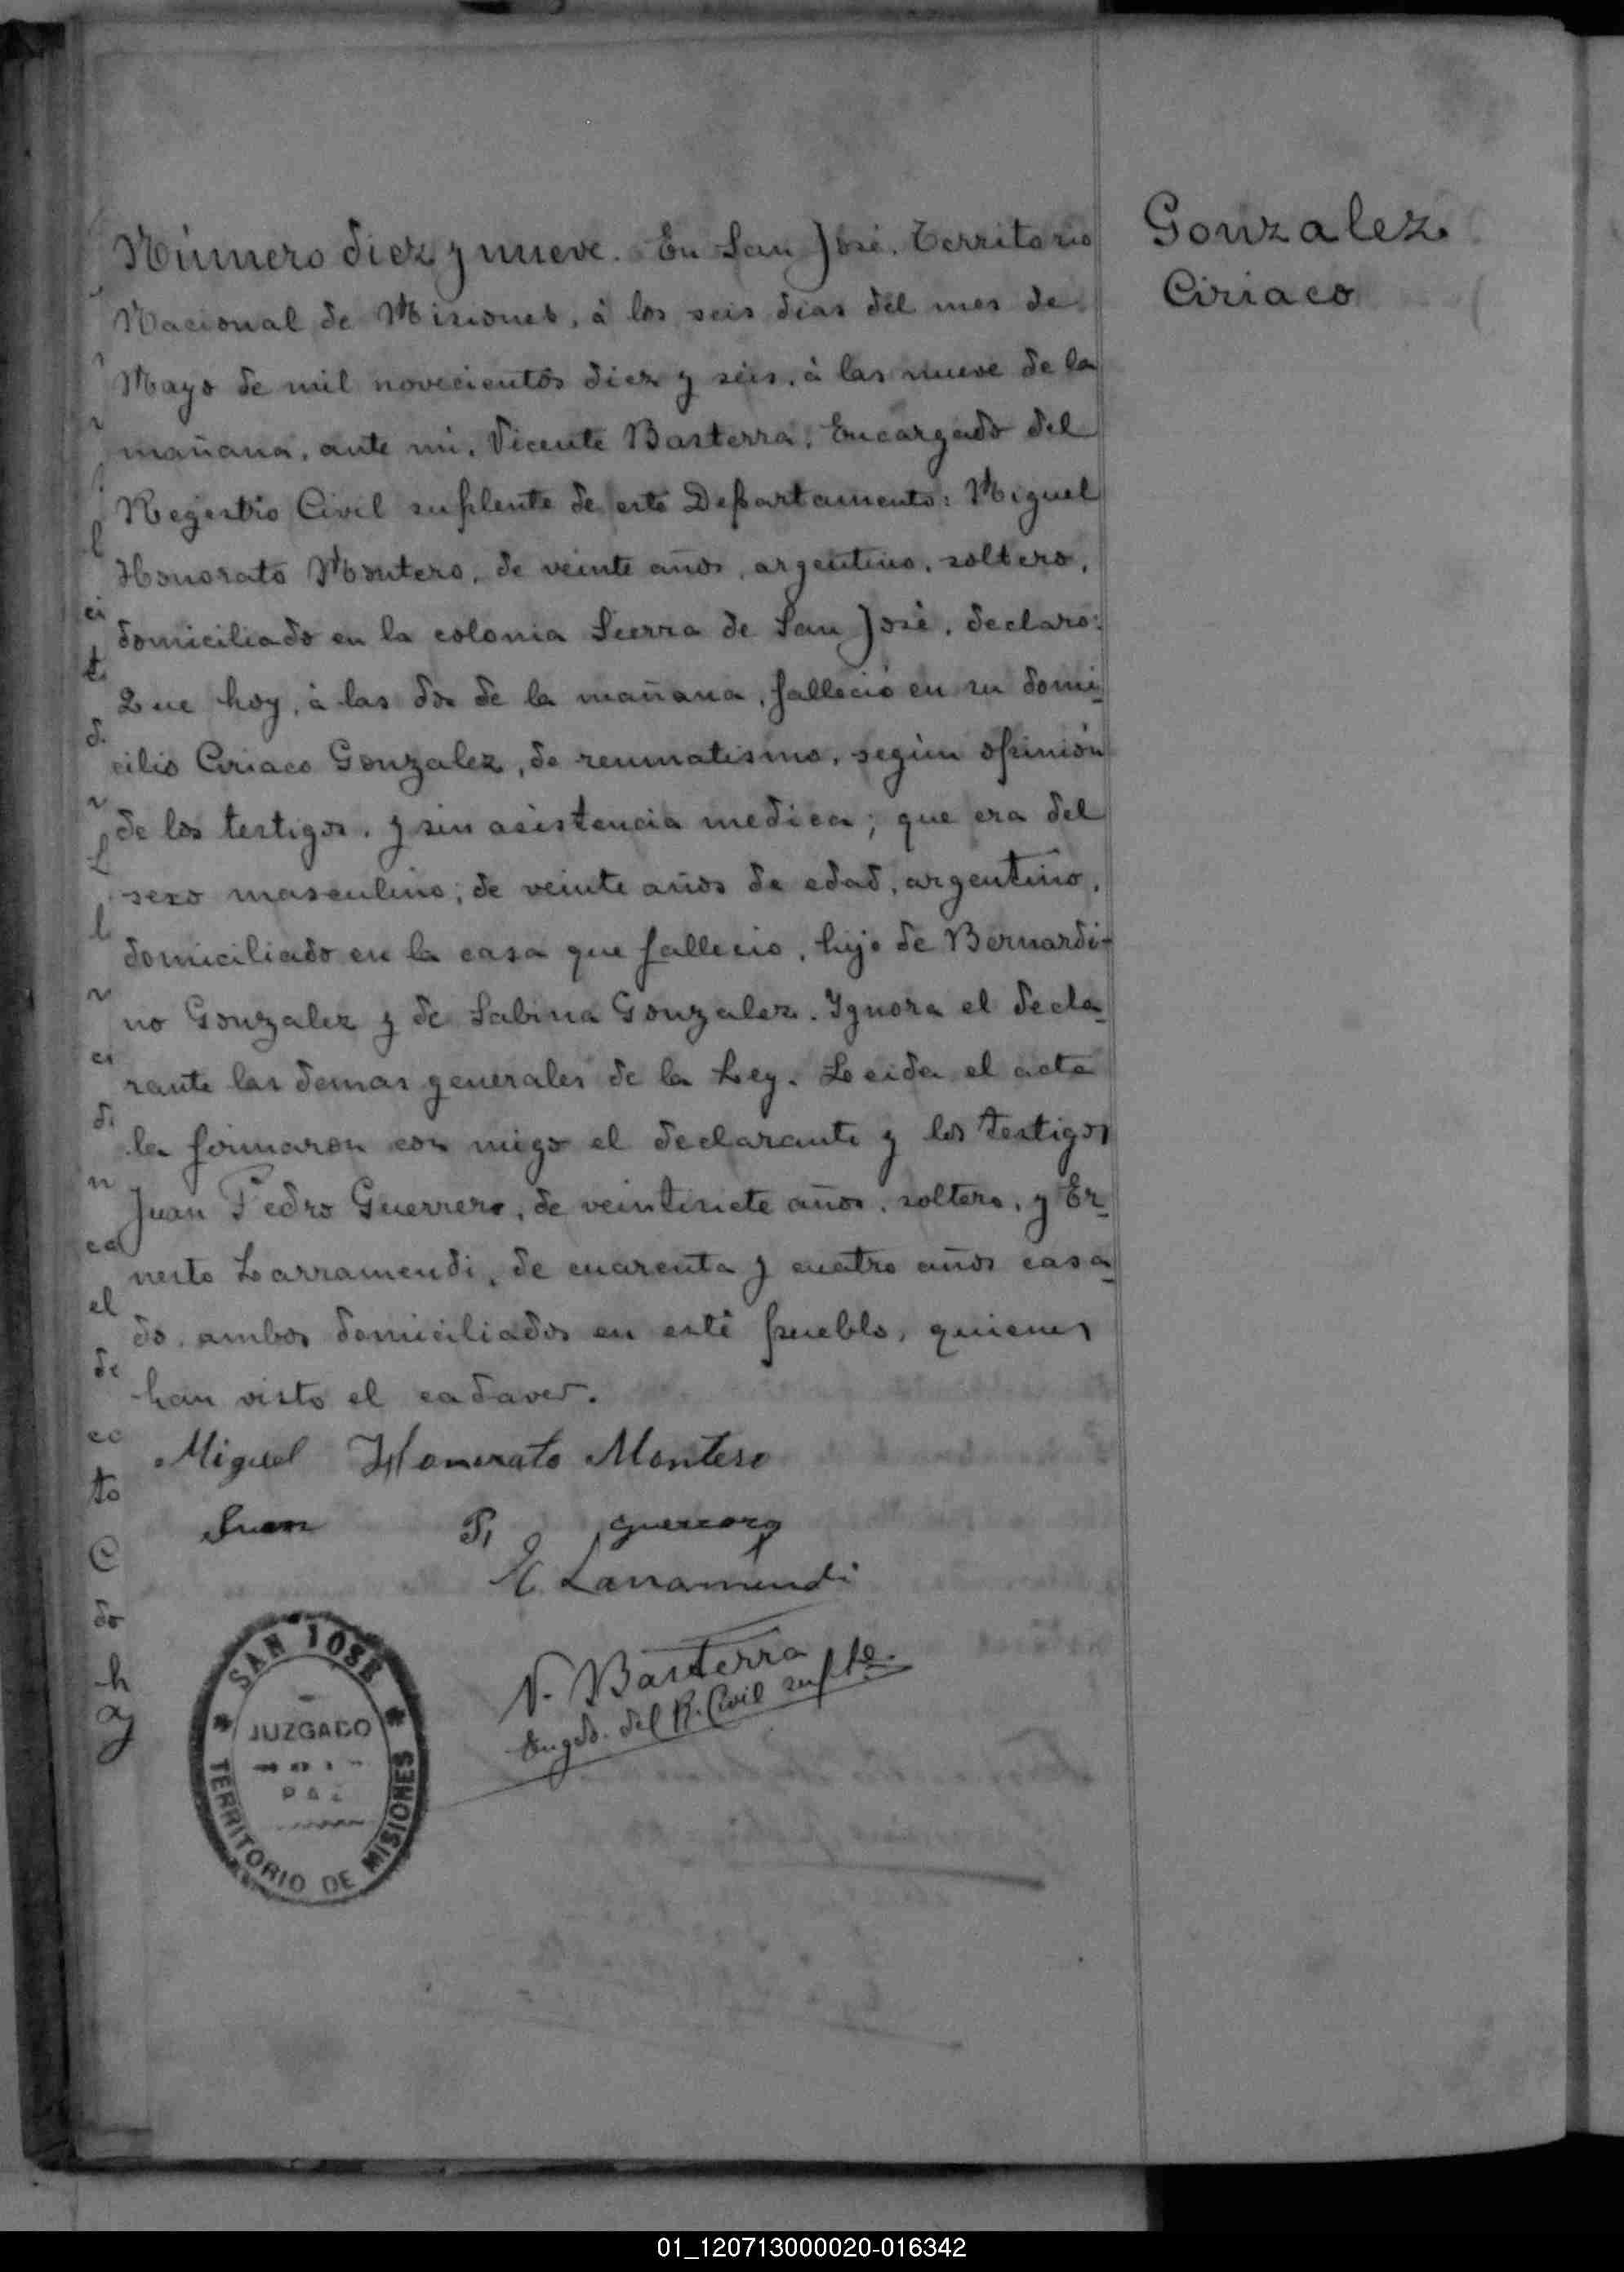 Gonzalez
Ciriaco
Número diez y nueve. En San José, Territorio
Nacional de Misiones, à los seis dias del mes de
Mayo de mil novecientos diez y seis, à las nueve de la
mañana, ante mi, Vicente Basterra, Encargado del
Registro Civil suplente de este Departamento: Miguel
Honorato Montero, de veinte años, argentino, soltero,
domiciliado en la colonia Sierra de San José, declaro:
Que hoy, à las dos de la mañana, falleció en su domi-
cilio Ciriaco Gonzalez, de reumatismo, según opinión
de los testigos, y sin asistencia medica; que era del
sexo masculino; de veinte años de edad, argentino,
domiciliado en la casa que fallecio, hijo de Bernardi-
no Gonzalez y de Sabina Gonzalez. Ygnora el decla-
rante las demas generales de la Ley. Leida el acta
la firmaron con migo el declarante y los testigos
Juan Pedro Guerrero, de veintisiete años, soltero, y Er-
nesto Larramendi, de cuarenta y cuatro años casa-
do, ambos domiciliados en este pueblo, quienes
han visto el cadaver.
Miguel Honorato Montero
Juan P.
E. Larramendi
V. Basterra
Engdo. del R. Civil suplte.
SAN JOSE
JUZGADO
DE
PAZ
TERRITORIO DE MISIONES
01_120713000020-016342